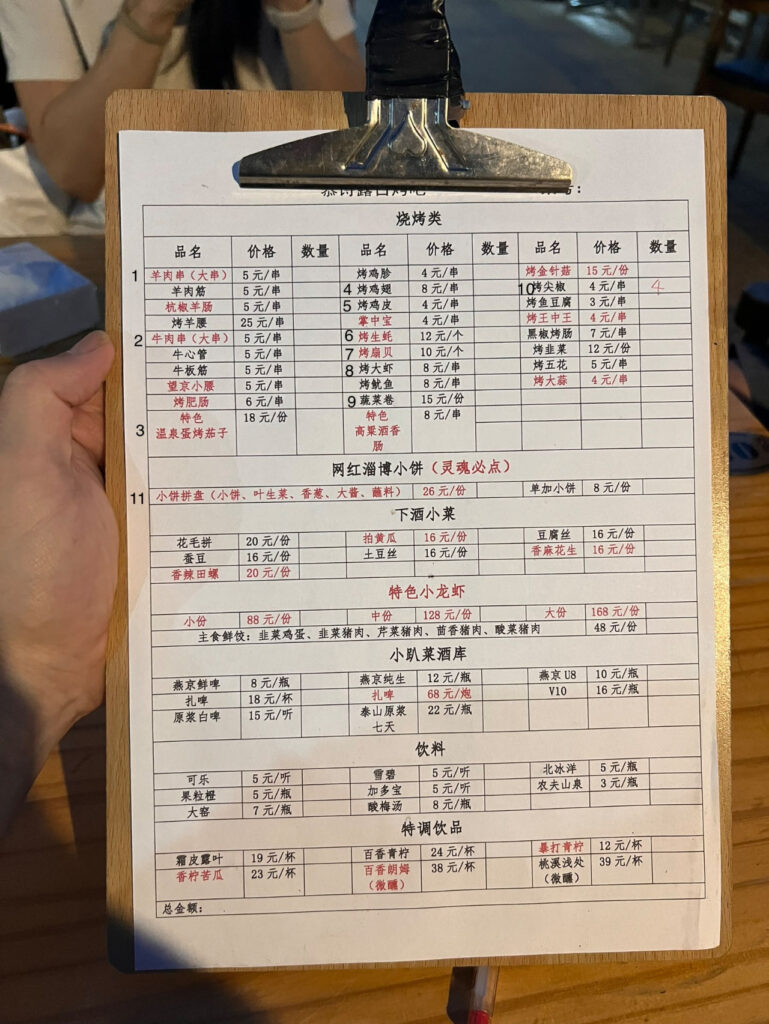 烧烤类
品名 价格 数量 品名 价格 数量 品名 价格 数量
1 羊肉串（大串） 5 元/串 烤鸡胗 4 元/串 烤金针菇 15 元/份
羊肉筋 5 元/串 4 烤鸡翅 8 元/串 10 烤尖椒 4 元/串 4
杭椒羊肠 5 元/串 5 烤鸡皮 4 元/串 烤鱼豆腐 3 元/串
烤羊腰 25 元/串 掌中宝 4 元/串 烤王中王 4 元/串
2 牛肉串（大串） 5 元/串 6 烤生蚝 12 元/个 黑椒烤肠 7 元/串
牛心管 5 元/串 7 烤扇贝 10 元/个 烤韭菜 12 元/份
牛板筋 5 元/串 8 烤大虾 8 元/串 烤五花 5 元/串
望京小腰 5 元/串 烤鱿鱼 8 元/串 烤大蒜 4 元/串
烤肥肠 6 元/串 9 蔬菜卷 15 元/份
3 特色 18 元/份 特色 8 元/串
温泉蛋烤茄子 高粱酒香
肠
网红淄博小饼（灵魂必点）
11 小饼拼盘（小饼、叶生菜、香葱、大酱、蘸料） 26 元/份 单加小饼 8 元/份
下酒小菜
花毛拼 20 元/份 拍黄瓜 16 元/份 豆腐丝 16 元/份
蚕豆 16 元/份 土豆丝 16 元/份 香麻花生 16 元/份
香辣田螺 20 元/份
特色小龙虾
小份 88 元/份 中份 128 元/份 大份 168 元/份
主食鲜饺：韭菜鸡蛋、韭菜猪肉、芹菜猪肉、茴香猪肉、酸菜猪肉 48 元/份
小趴菜酒库
燕京鲜啤 8 元/瓶 燕京纯生 12 元/瓶 燕京 U8 10 元/瓶
扎啤 18 元/杯 扎啤 68 元/炮 V10 16 元/瓶
原浆白啤 15 元/听 泰山原浆 22 元/瓶
七天
饮料
可乐 5 元/听 雪碧 5 元/听 北冰洋 5 元/瓶
果粒橙 5 元/瓶 加多宝 5 元/听 农夫山泉 3 元/瓶
大窑 7 元/瓶 酸梅汤 8 元/瓶
特调饮品
霜皮露叶 19 元/杯 百香青柠 24 元/杯 暴打青柠 12 元/杯
香柠苦瓜 23 元/杯 百香朗姆 38 元/杯 桃溪浅处 39 元/杯
（微醺） （微醺）
总金额：